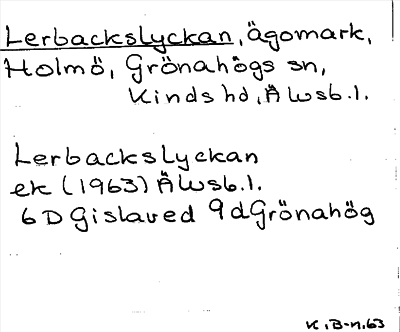 Lerbackslyckan, ägomark,
Holmö, Grönahögs sn,
Kinds hd, Älvsb.l.
Lerbackslyckan
ek (1963) Älvsb.l.
6D Gislaved 9d Grönahög
K.B-n.63